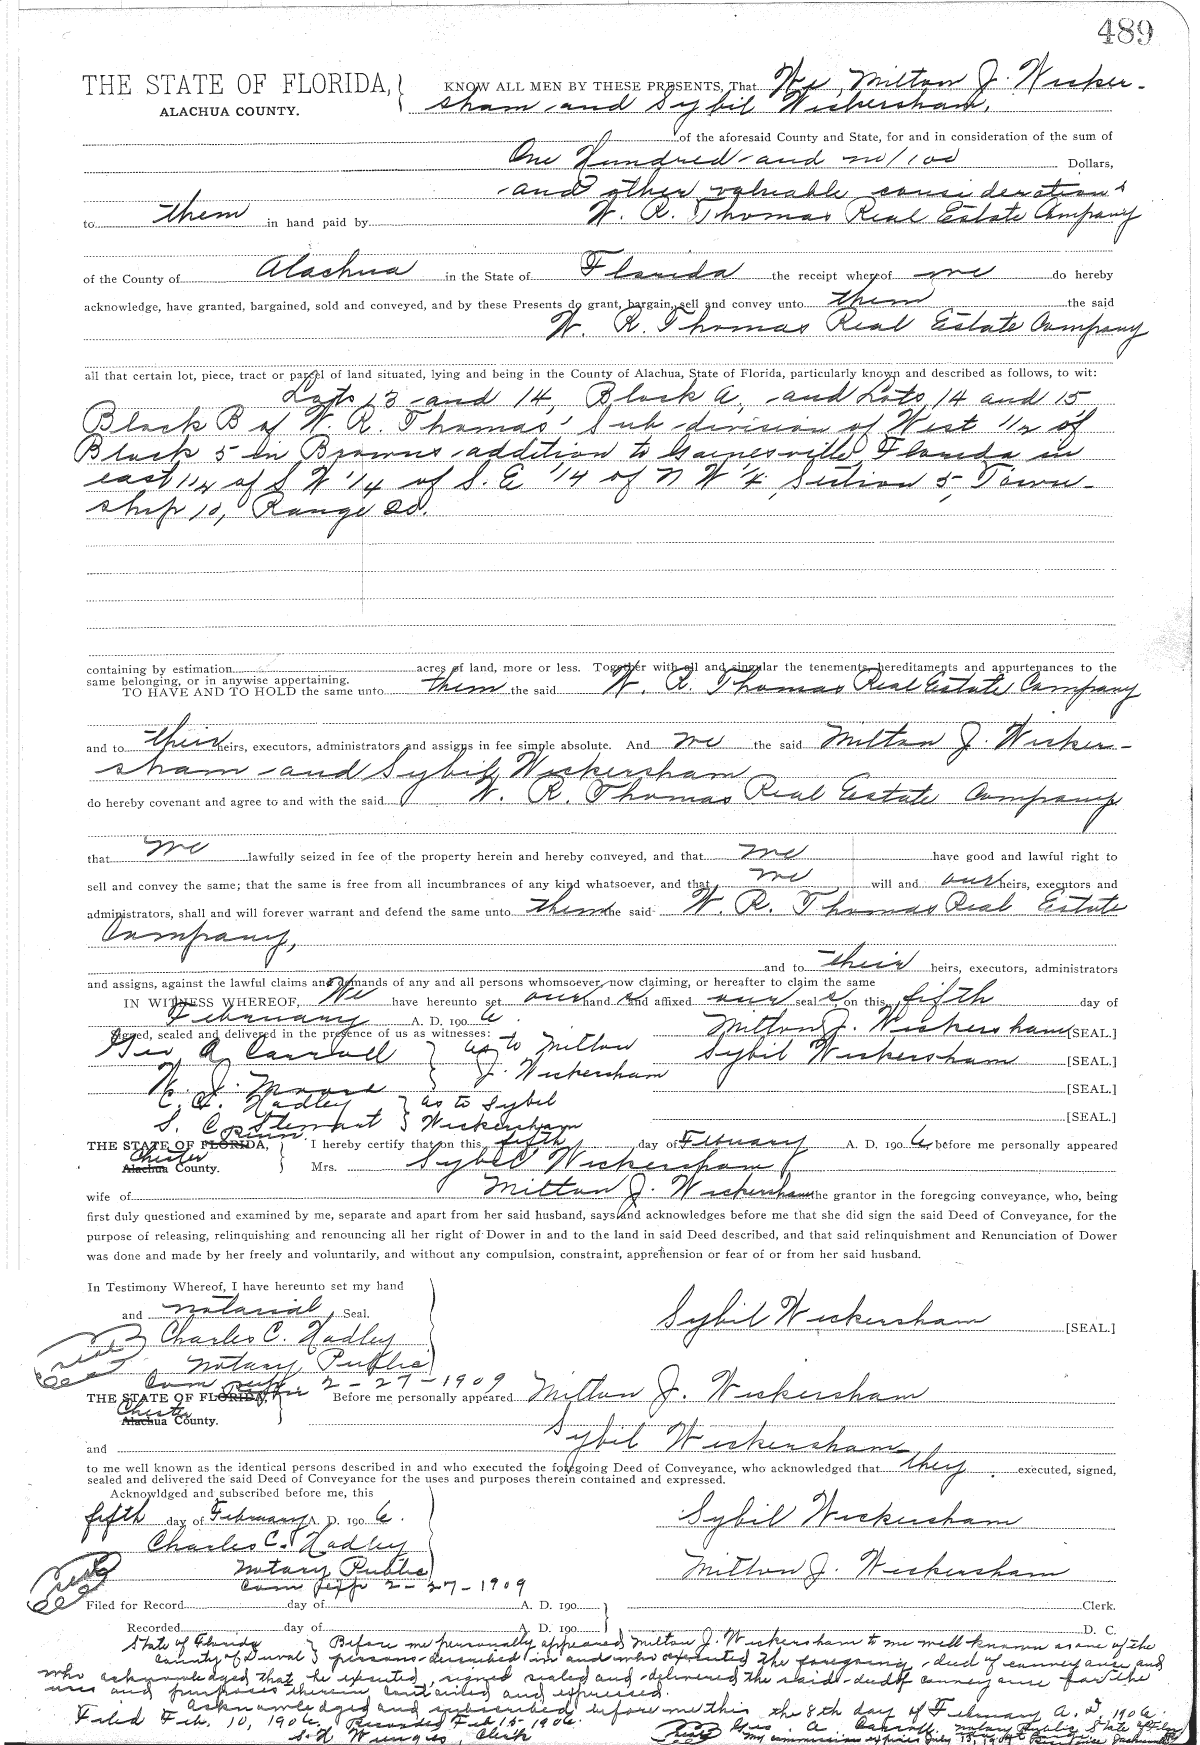 489
THE STATE OF FLORIDA, KNOW ALL MEN BY THESE PRESENTS, That We, Milton J. Wicker-
ALACHUA COUNTY. sham and Sybil Wickersham,
of the aforesaid County and State, for and in consideration of the sum of
One Hundred and no/100 Dollars,
and other valuable considerations
to them in hand paid by W. R. Thomas Real Estate Company
of the County of Alachua in the State of Florida the receipt whereof we do hereby
acknowledge, have granted, bargained, sold and conveyed, and by these Presents do grant, bargain, sell and convey unto them the said
W. R. Thomas Real Estate Company
all that certain lot, piece, tract or parcel of land situated, lying and being in the County of Alachua, State of Florida, particularly known and described as follows, to wit:
Lots 13 and 14, Block A, and Lots 14 and 15
Block B of W. R. Thomas' Sub-division of West 1/2 of
Block 5 in Browns addition to Gainesville, Florida in
east 1/2 of S W 1/4 of S. E 1/4 of N W 1/4, Section 5, Town-
ship 10, Range 20.
containing by estimation acres of land, more or less. Together with all and singular the tenements, hereditaments and appurtenances to the
same belonging, or in anywise appertaining.
TO HAVE AND TO HOLD the same unto them the said W. R. Thomas Real Estate Company
and to their heirs, executors, administrators and assigns in fee simple absolute. And we the said Milton J. Wicker-
sham and Sybil Wickersham
do hereby covenant and agree to and with the said W. R. Thomas Real Estate Company
that we lawfully seized in fee of the property herein and hereby conveyed, and that we have good and lawful right to
sell and convey the same; that the same is free from all incumbrances of any kind whatsoever, and that we will and our heirs, executors and
administrators, shall and will forever warrant and defend the same unto them the said W. R. Thomas Real Estate
Company,
and to their heirs, executors, administrators
and assigns, against the lawful claims and demands of any and all persons whomsoever, now claiming, or hereafter to claim the same
IN WITNESS WHEREOF, We have hereunto set our hand s and affixed our seal s, on this fifth day of
February A. D. 190 6.
Signed, sealed and delivered in the presence of us as witnesses: Milton J. Wickersham [SEAL.]
Geo A Carroll as to Milton Sybil Wickersham [SEAL.]
W. J. Moore J. Wickersham [SEAL.]
C. C. Hadley as to Sybil
S. C. Stewart Wickersham [SEAL.]
Penn.
THE STATE OF FLORIDA, I hereby certify that on this fifth day of February A. D. 190 6, before me personally appeared
Chester
Alachua County. Mrs. Sybil Wickersham
wife of Milton J. Wickersham the grantor in the foregoing conveyance, who, being
first duly questioned and examined by me, separate and apart from her said husband, says and acknowledges before me that she did sign the said Deed of Conveyance, for the
purpose of releasing, relinquishing and renouncing all her right of Dower in and to the land in said Deed described, and that said relinquishment and Renunciation of Dower
was done and made by her freely and voluntarily, and without any compulsion, constraint, apprehension or fear of or from her said husband.
In Testimony Whereof, I have hereunto set my hand
and notarial Seal. Sybil Wickersham [SEAL.]
seal Charles C. Hadley
Notary Public
Com exp 2-27-1909
THE STATE OF FLORIDA, Before me personally appeared Milton J. Wickersham
Chester
Alachua County.
and Sybil Wickersham
to me well known as the identical persons described in and who executed the foregoing Deed of Conveyance, who acknowledged that they executed, signed,
sealed and delivered the said Deed of Conveyance for the uses and purposes therein contained and expressed.
Acknowldged and subscribed before me, this
fifth day of February A. D. 190 6. Sybil Wickersham
Charles C. Hadley
seal Notary Public Milton J. Wickersham
Com exp 2-27-1909
Filed for Record day of A. D. 190 Clerk.
Recorded day of A. D. 190 D. C.
State of Florida Before me personally appeared Milton J. Wickersham to me well known as one of the
County of Duval persons described in and who executed the foregoing deed of conveyance and
who acknowledged that he executed, signed sealed and delivered the said deed of conveyance for the
uses and purposes therein contained and expressed.
Acknowledged and subscribed before me this the 8th day of February A. D, 1906.
Filed Feb. 10, 1906. Recorded Feb 15-1906. seal Geo. A Carroll Notary Public State of Fla
S. H. Wienges, Clerk My commission expires July 13, 1909